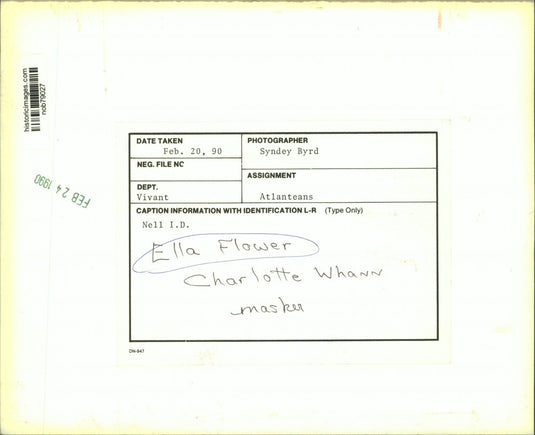 historicimages.com
nob79027
FEB 24 1990
DATE TAKEN
Feb. 20, 90
PHOTOGRAPHER
Syndey Byrd
NEG. FILE NO
ASSIGNMENT
Atlanteans
DEPT.
Vivant
CAPTION INFORMATION WITH IDENTIFICATION L-R (Type Only)
Nell I.D.
Ella Flower
Charlotte Whann
masker
DN-947